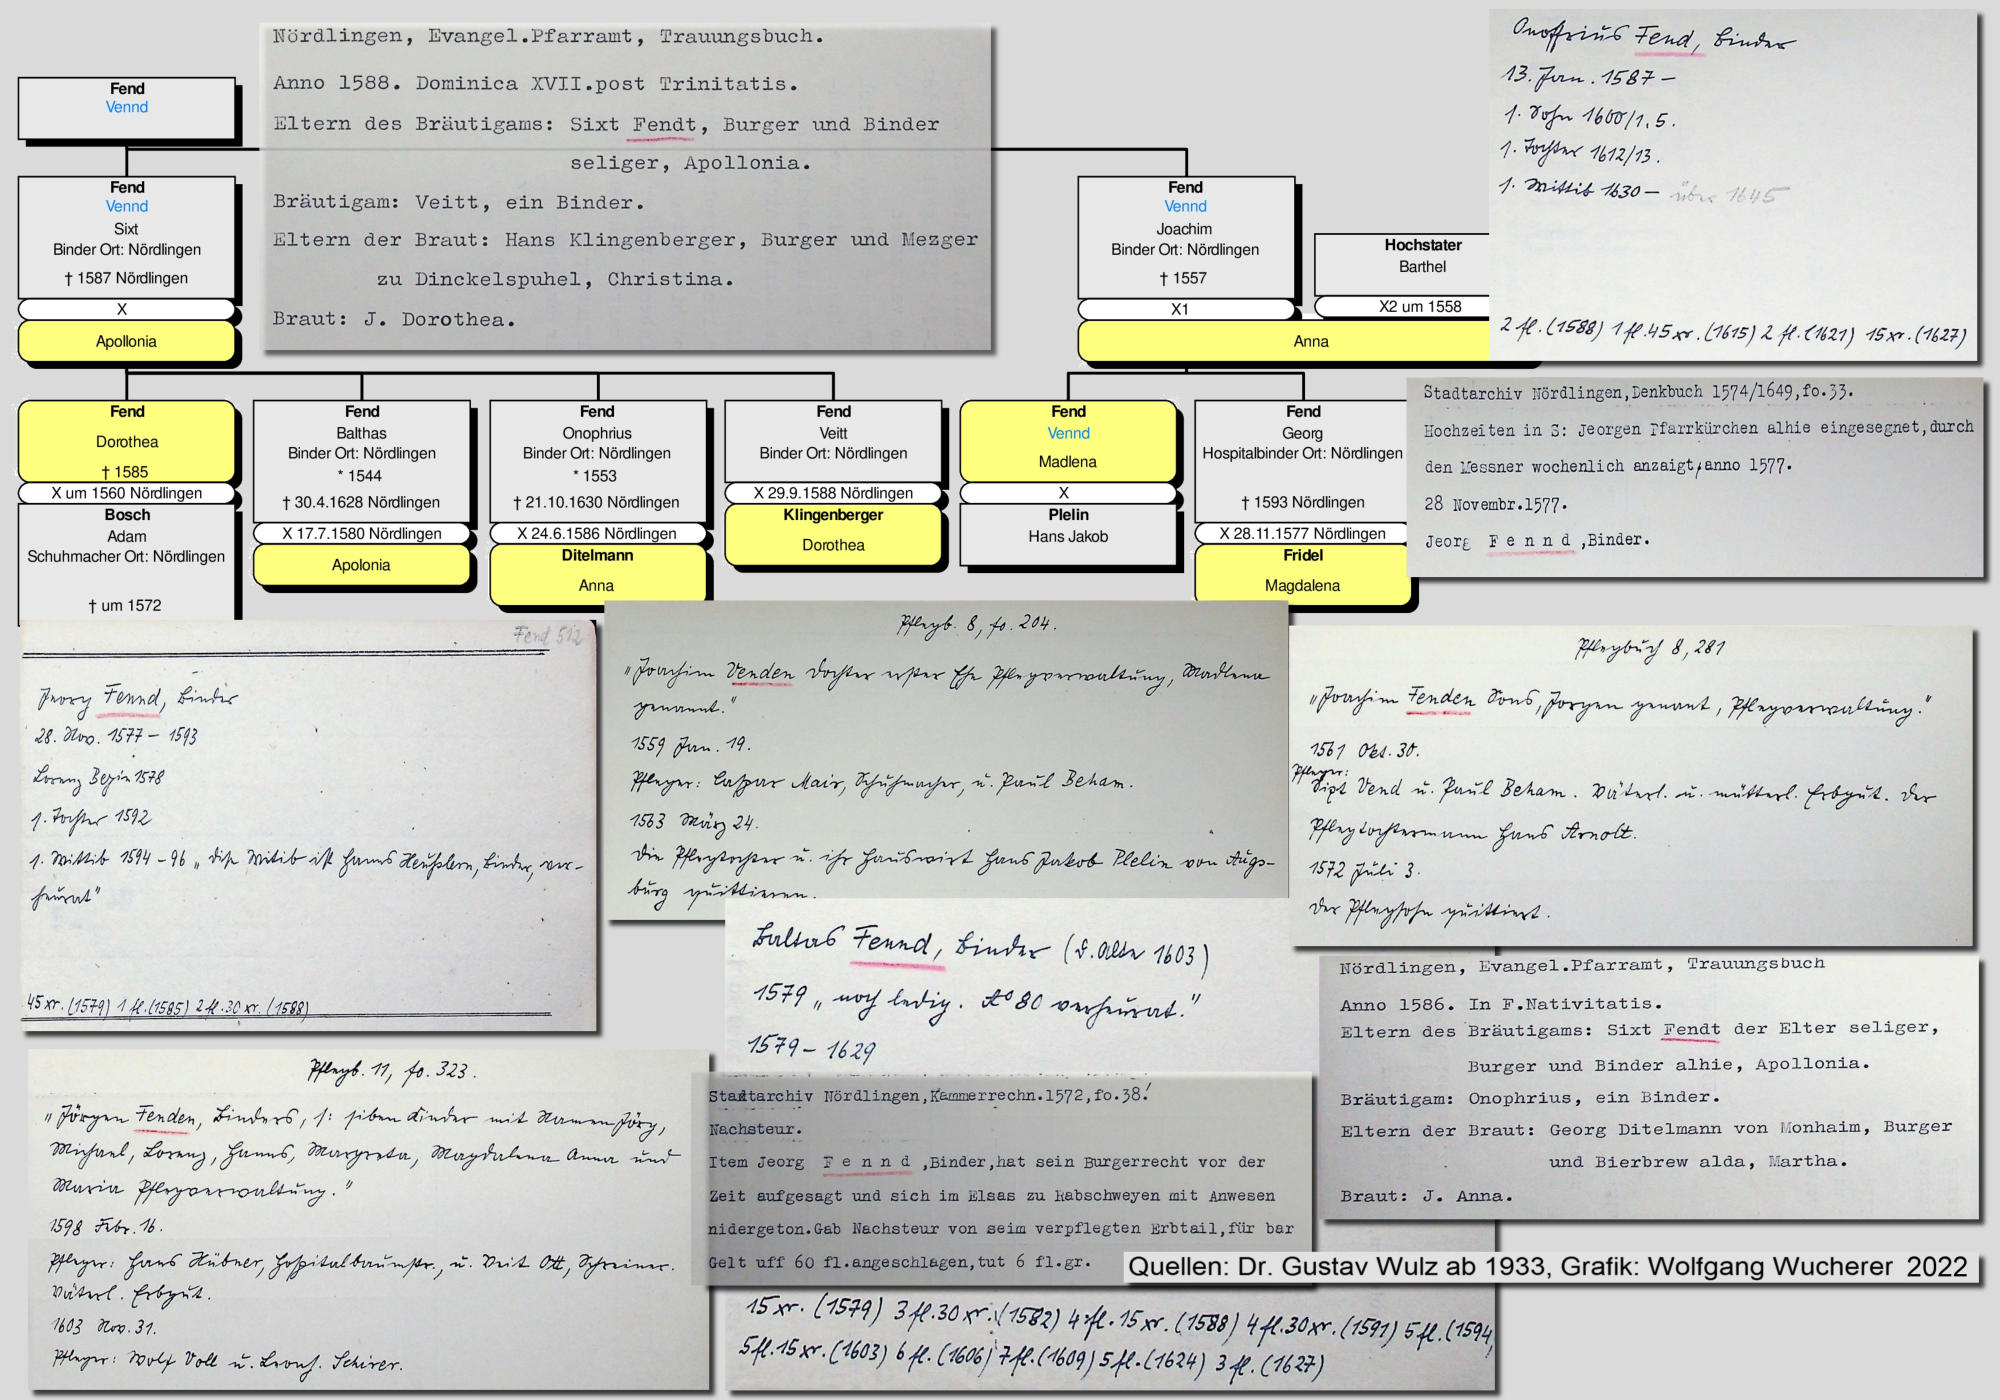 Fend
Vennd
Fend
Vennd
Sixt
Binder Ort: Nördlingen
† 1587 Nördlingen
X
Apollonia
Nördlingen, Evangel.Pfarramt, Trauungsbuch.
Anno 1588. Dominica XVII.post Trinitatis.
Eltern des Bräutigams: Sixt Fendt, Burger und Binder
seliger, Apollonia.
Bräutigam: Veitt, ein Binder.
Eltern der Braut: Hans Klingenberger, Burger und Mezger
zu Dinckelspuhel, Christina.
Braut: J. Dorothea.
Fend
Vennd
Joachim
Binder Ort: Nördlingen
† 1557
X1
Hochstater
Barthel
X2 um 1558
Anna
Onoffrius Fend, Binder
13. Jan. 1587 –
1. Sohn 1600/1, 5.
1. Tochter 1612/13.
1. Wittib 1630 – über 1645
2 fl. (1588) 1 fl. 45 xr. (1615) 2 fl. (1621) 15 xr. (1627)
Fend
Dorothea
† 1585
X um 1560 Nördlingen
Bosch
Adam
Schuhmacher Ort: Nördlingen
† um 1572
Fend
Balthas
Binder Ort: Nördlingen
* 1544
† 30.4.1628 Nördlingen
X 17.7.1580 Nördlingen
Apolonia
Fend
Onophrius
Binder Ort: Nördlingen
* 1553
† 21.10.1630 Nördlingen
X 24.6.1586 Nördlingen
Ditelmann
Anna
Fend
Veitt
Binder Ort: Nördlingen
X 29.9.1588 Nördlingen
Klingenberger
Dorothea
Fend
Vennd
Madlena
X
Plelin
Hans Jakob
Fend
Georg
Hospitalbinder Ort: Nördlingen
† 1593 Nördlingen
X 28.11.1577 Nördlingen
Fridel
Magdalena
Stadtarchiv Nördlingen,Denkbuch 1574/1649,fo.33.
Hochzeiten in S: Jeorgen Pfarrkürchen alhie eingesegnet,durch
den Messner wochenlich anzaigt,anno 1577.
28 Novembr.1577.
Jeorg F e n n d ,Binder.
Fend 512
Jeorg Fennd, Binder
28. Nov. 1577 – 1593
Lorenz Begin 1578
1. Tochter 1592
1. Wittib 1594 – 96 „dise Witib ist Hanns Heußlern, Binder, ver-
heurat"
45 xr. (1579) 1 fl. (1585) 2 fl. 30 xr. (1588)
Pflegb. 8, fo. 204.
„Joachim Venden Dochter erster Ehe Pflegverwaltung, Madlena
genannt."
1559 Jan. 19.
Pfleger: Caspar Mair, Schuhmacher, u. Paul Beham.
1563 März 24.
Die Pflegtochter u. ihr Hauswirt Hans Jakob Plelin von Augs-
burg quittieren.
Pflegbuch 8, 281
„Joachim Fenden Sons, Jorgen genant, Pflegverwaltung."
1561 Okt. 30.
Pfleger:
Sixt Vend u. Paul Beham. Väterl. u. mütterl. Erbgut. Der
Pflegtochtermann Hans Arnolt.
1572 Juli 3.
Der Pflegsohn quittiert.
Baltas Fennd, Binder (d. Alte 1603)
1579 „noch ledig. Aº 80 verheurat."
1579 – 1629
Nördlingen, Evangel.Pfarramt, Trauungsbuch
Anno 1586. In F.Nativitatis.
Eltern des Bräutigams: Sixt Fendt der Elter seliger,
Burger und Binder alhie, Apollonia.
Bräutigam: Onophrius, ein Binder.
Eltern der Braut: Georg Ditelmann von Monhaim, Burger
und Bierbrew alda, Martha.
Braut: J. Anna.
Pflegb. 11, fo. 323.
„Jörgen Fenden, Binders, s: siben Kinder mit Namen Jörg,
Michael, Lorenz, Hanns, Margreta, Magdalena Anna und
Maria Pflegverwaltung."
1598 Febr. 16.
Pfleger: Hans Hübner, Hospitalbaumstr., u. Veit Ott, Schreiner.
Väterl. Erbgut.
1603 Nov. 31.
Pfleger: Wolf Voll u. Leonh. Schirer.
Stadtarchiv Nördlingen,Kammerrechn.1572,fo.38!
Nachsteur.
Item Jeorg F e n n d ,Binder,hat sein Burgerrecht vor der
Zeit aufgesagt und sich im Elsas zu Rabschweyen mit Anwesen
nidergeton.Gab Nachsteur von seim verpflegten Erbtail,für bar
Gelt uff 60 fl.angeschlagen,tut 6 fl.gr.
Quellen: Dr. Gustav Wulz ab 1933, Grafik: Wolfgang Wucherer 2022
15 xr. (1579) 3 fl. 30 xr. (1582) 4 fl. 15 xr. (1588) 4 fl. 30 xr. (1591) 5 fl. (1594,
5 fl. 15 xr. (1603) 6 fl. (1606) 7 fl. (1609) 5 fl. (1624) 3 fl. (1627)